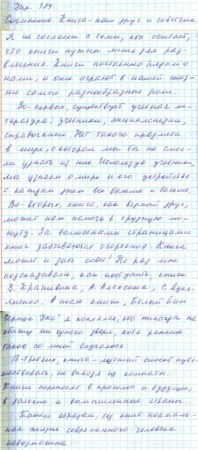 Упр. 384
Сочинение. Книга – наш друг и советчик
Я не согласен с теми, кто считает,
что книги нужны лишь для раз-
влечения. Книги постоянно рядом с
нами, и они играют в нашей жиз-
ни самые разнообразные роли.
Во-первых, существует учебная ли-
тература: учебники, энциклопедии,
справочники. Нет такого предмета
в мире, о котором мы бы не смог-
ли узнать из них. Используя учебники,
мы узнаем о мире и его устройстве
с каждым днем все больше и больше.
Во-вторых, книга, как верный друг,
может нам помочь в трудную ми-
нуту. За волшебными страницами
книг забываются огорчения. Книга
может и дать совет! Не раз мне
подсказывали, как поступить, книги
В. Крапивина, А. Алексина, С. Лукь-
яненко. А после книги "Белый Бим
Черное Ухо" я поклялся, что никогда не
обижу ни одного зверя, хотя раньше
такое со мной случалось.
В-третьих, книга – лучший способ путе-
шествовать, не выходя из комнаты.
Книги переносят в прошлое и будущее,
в далекие и вымышленные страны.
Таким образом, без книг нормаль-
ная жизнь современного человека
невозможна.